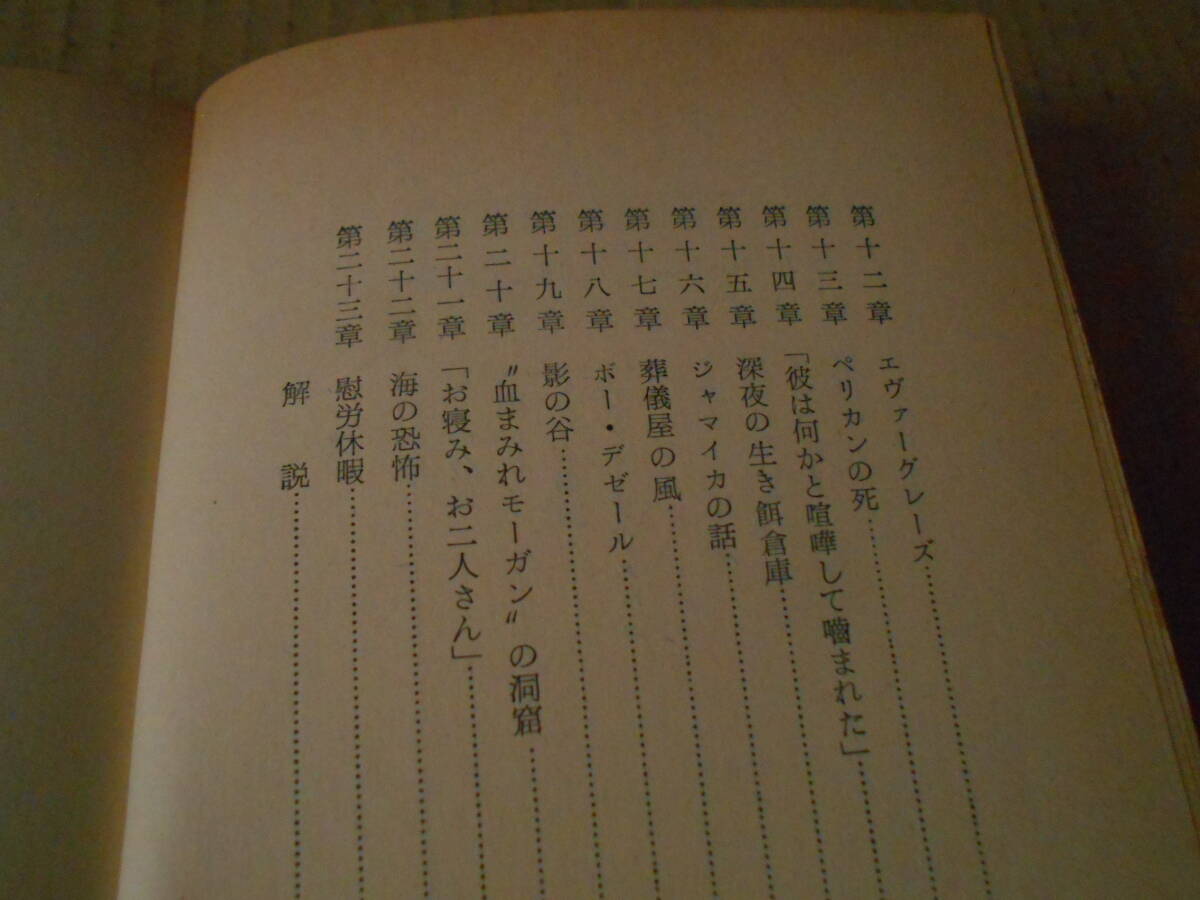 第十二章 エヴァーグレーズ……………………
第十三章 ペリカンの死……………………
第十四章 「彼は何かと喧嘩して嚙まれた」……………………
第十五章 深夜の生き餌倉庫……………………
第十六章 ジャマイカの話……………………
第十七章 葬儀屋の風……………………
第十八章 ボー・デゼール……………………
第十九章 影の谷……………………
第二十章 〝血まみれモーガン〟の洞窟……………………
第二十一章 「お寝み、お二人さん」……………………
第二十二章 海の恐怖……………………
第二十三章 慰労休暇……………………
解説……………………